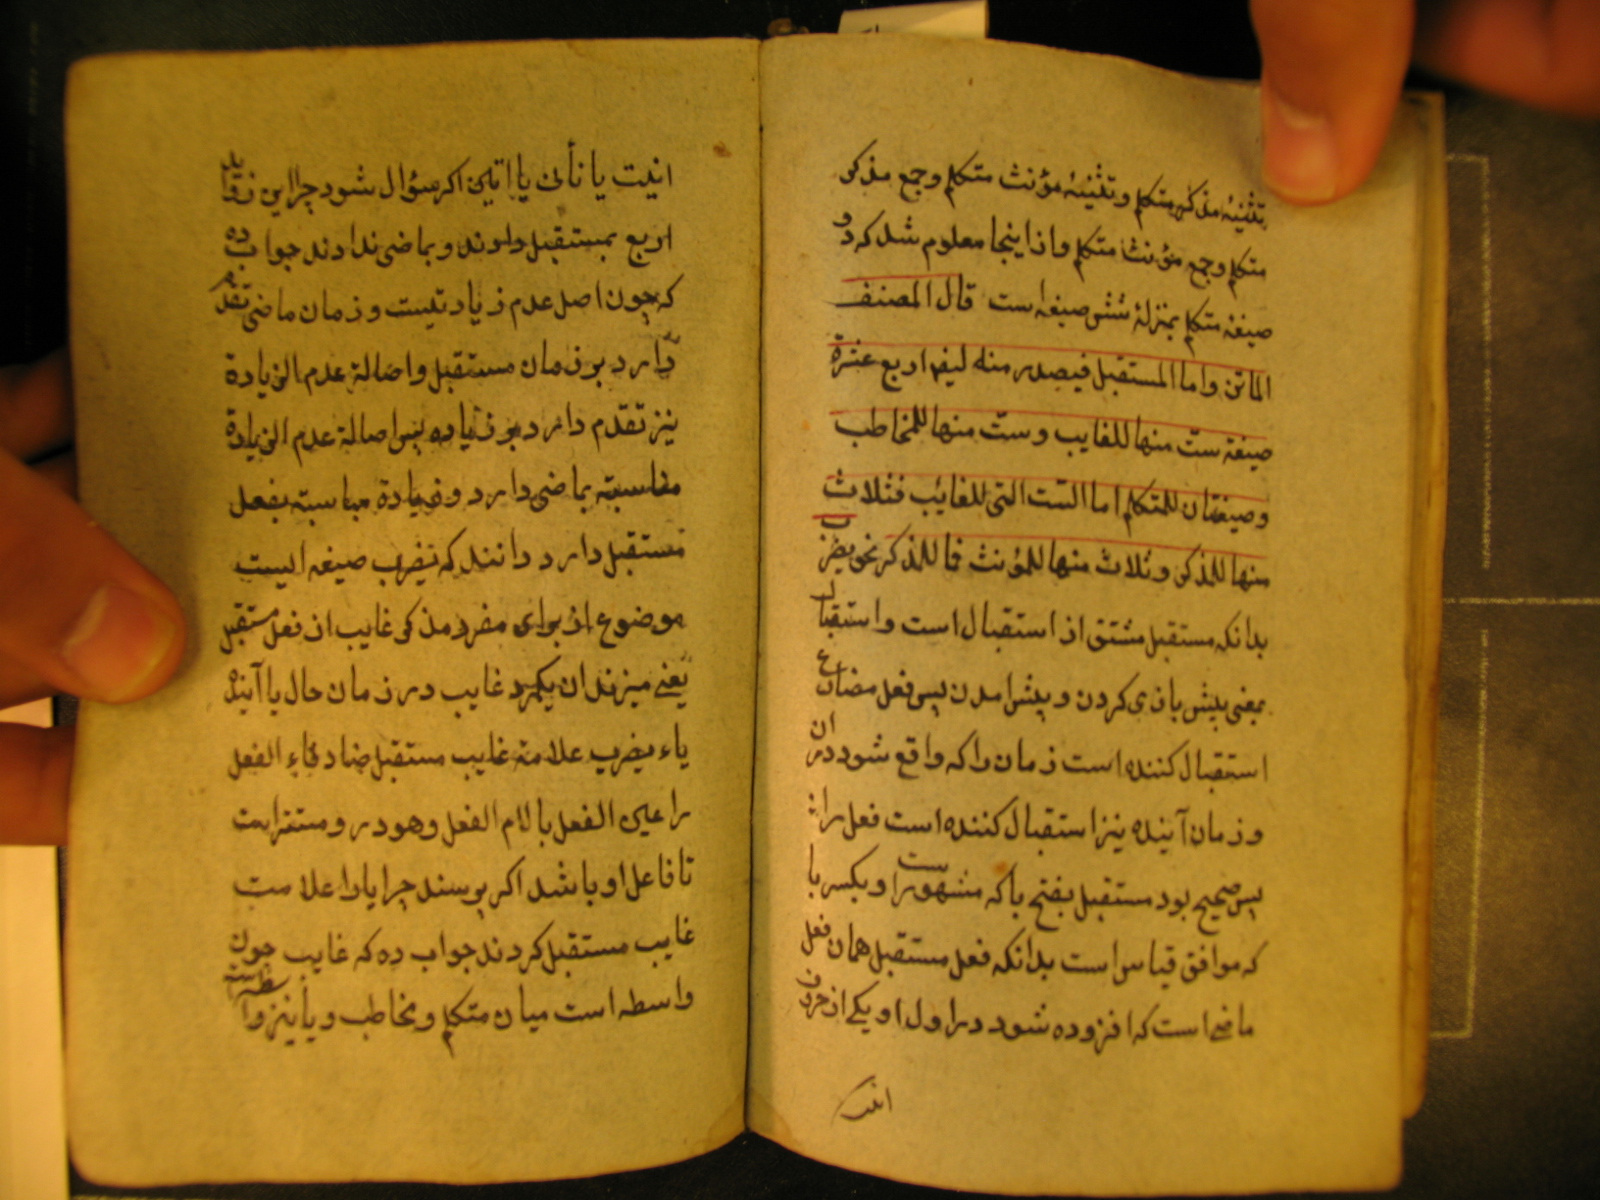 تثنیهٔ مذکر متکلم و تثنیهٔ مؤنث متکلم و جمع مذکر
متکلم و جمع مؤنث متکلم و از اینجا معلوم شد که دو
صیغهٔ متکلم بمنزلهٔ شش صیغه است قال المصنف
الماتن و اما المستقبل فیصدر منه ایضا اربع عشرة
صیغة ست منها للغایب و ست منها للمخاطب
و صیغتان للمتکلم اما الست التی للغایب فثلاث
منها للمذکر و ثلاث منها للمؤنث فما للمذکر نحو یضرب
بدانکه مستقبل مشتق از استقبال است و استقبال
بمعنی پیش بازی کردن و پیش امدن پس فعل مضارع
استقبال کننده است زمان را که واقع شود در ان
و زمان آینده نیز استقبال کننده است فعل را
پس صحیح بود مستقبل بفتح با که مشهورست و بکسر با
که موافق قیاس است بدانکه فعل مستقبل همان فعل
ماضی است که افزوده شود در اول او یکی از حروف
انیت
انیت یا نأتی یا اتین اکر سؤال شود چرا این زواید
اربع بمستقبل دادند و بماضی ندادند جواب ده
که چون اصل عدم زیادتیست و زمان ماضی تقدم
دارد بر زمان مستقبل و اصالة عدم الزیادة
نیز تقدم دارد بر زیاده پس اصالة عدم الزیادة
مناسبته بماضی دارد و زیادة مناسبته بفعل
مستقبل دارد دانند که یضرب صیغه ایست
موضوع از برای مفرد مذکر غایب از فعل مستقبل
یعنی میزند ان یکمرد غایب در زمان حال یا آینده
یاء یضرب علامة غایب مستقبل ضاد فاء الفعل
را عین الفعل با لام الفعل و هو در و مستتر است
تا فاعل او باشد اکر پرسند چرا یا را علامت
غایب مستقبل کردند جواب ده که غایب چون
واسطه است میان متکلم و مخاطب و یا نیز واسطه است